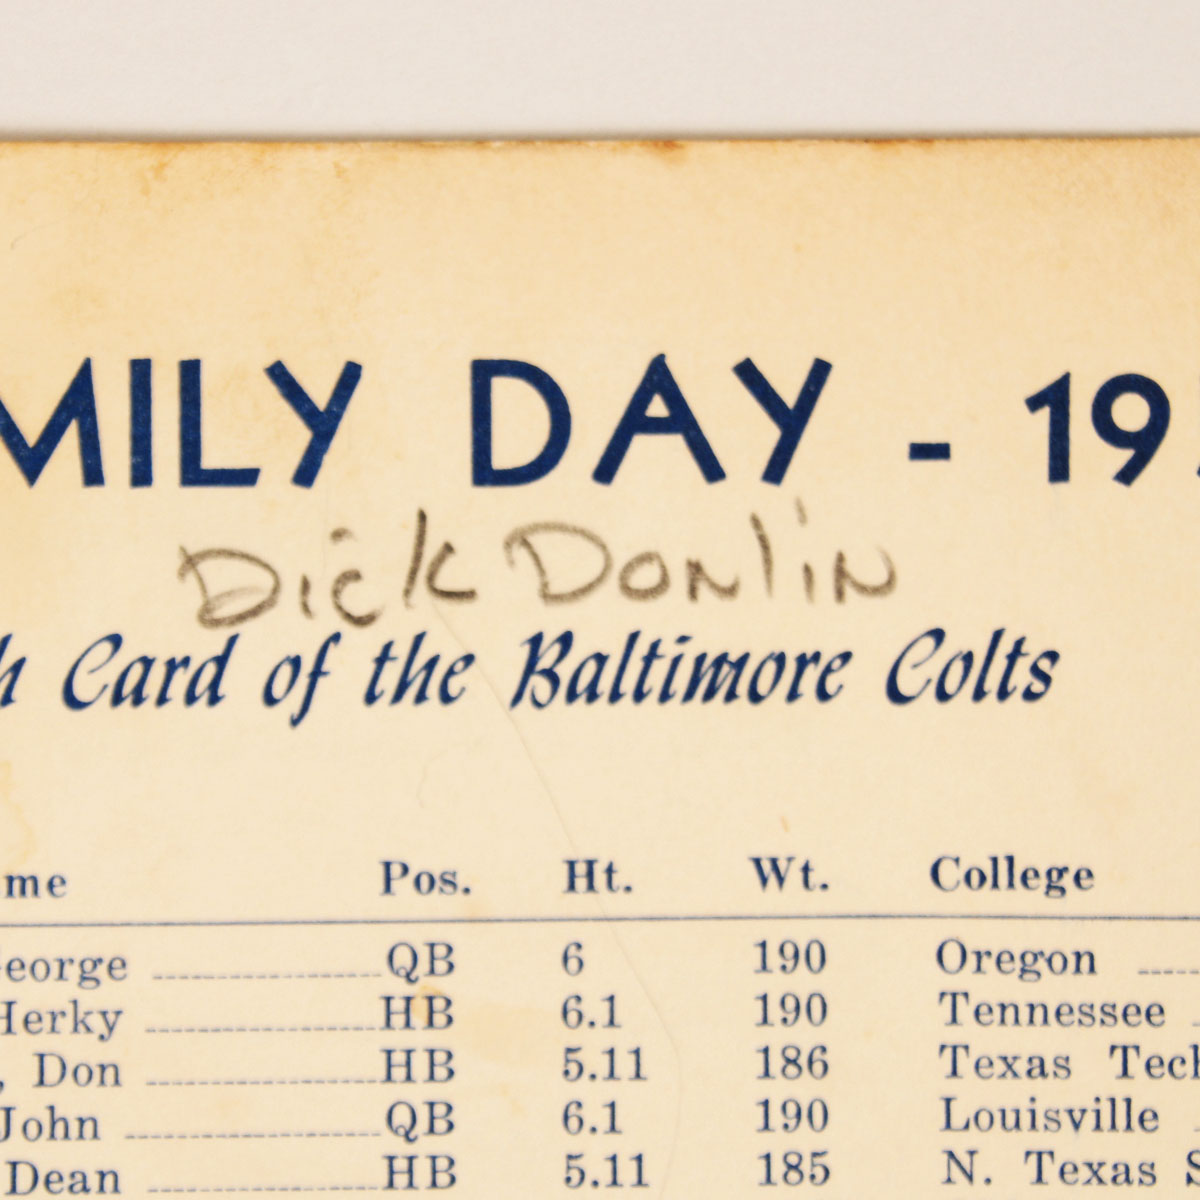 MILY DAY - 19
Dick Donlin
h Card of the Baltimore Colts
me Pos. Ht. Wt. College
eorge QB 6 190 Oregon
Herky HB 6.1 190 Tennessee
, Don HB 5.11 186 Texas Tech
John QB 6.1 190 Louisville
Dean HB 5.11 185 N. Texas S